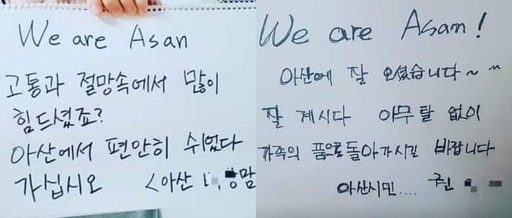 We are Asan
고통과 절망속에서 많이
힘드셨죠?
아산에서 편안히 쉬었다
가십시오 <아산 맘
We are Asan!
아산에 잘 오셨습니다~^^
잘 계시다 아무 탈 없이
가족의 품으로 돌아가시길 바랍니다
아산시민....